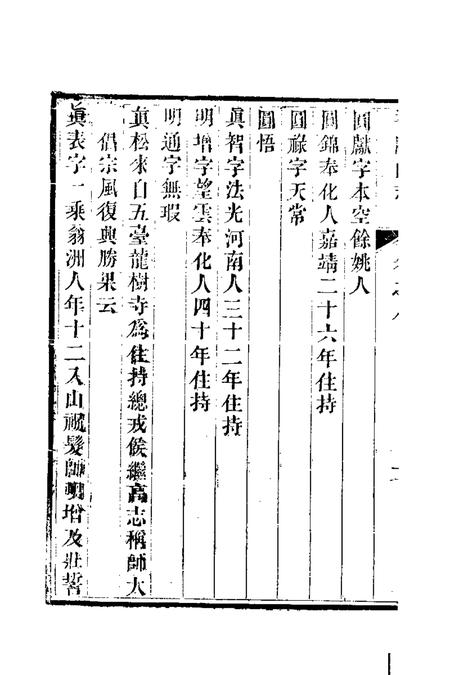 圓獻字本空餘姚人
圓錦奉化人嘉靖二十六年住持
圓祿字天常
圓悟
眞智字法光河南人三十二年住持
明增字望雲奉化人四十年住持
明通字無瑕
眞松來自五臺龍樹寺爲住持總戎侯繼高志稱師大
倡宗風復興勝果云
眞表字一乘翁洲人年十二入山祝髮師明增及壯誓